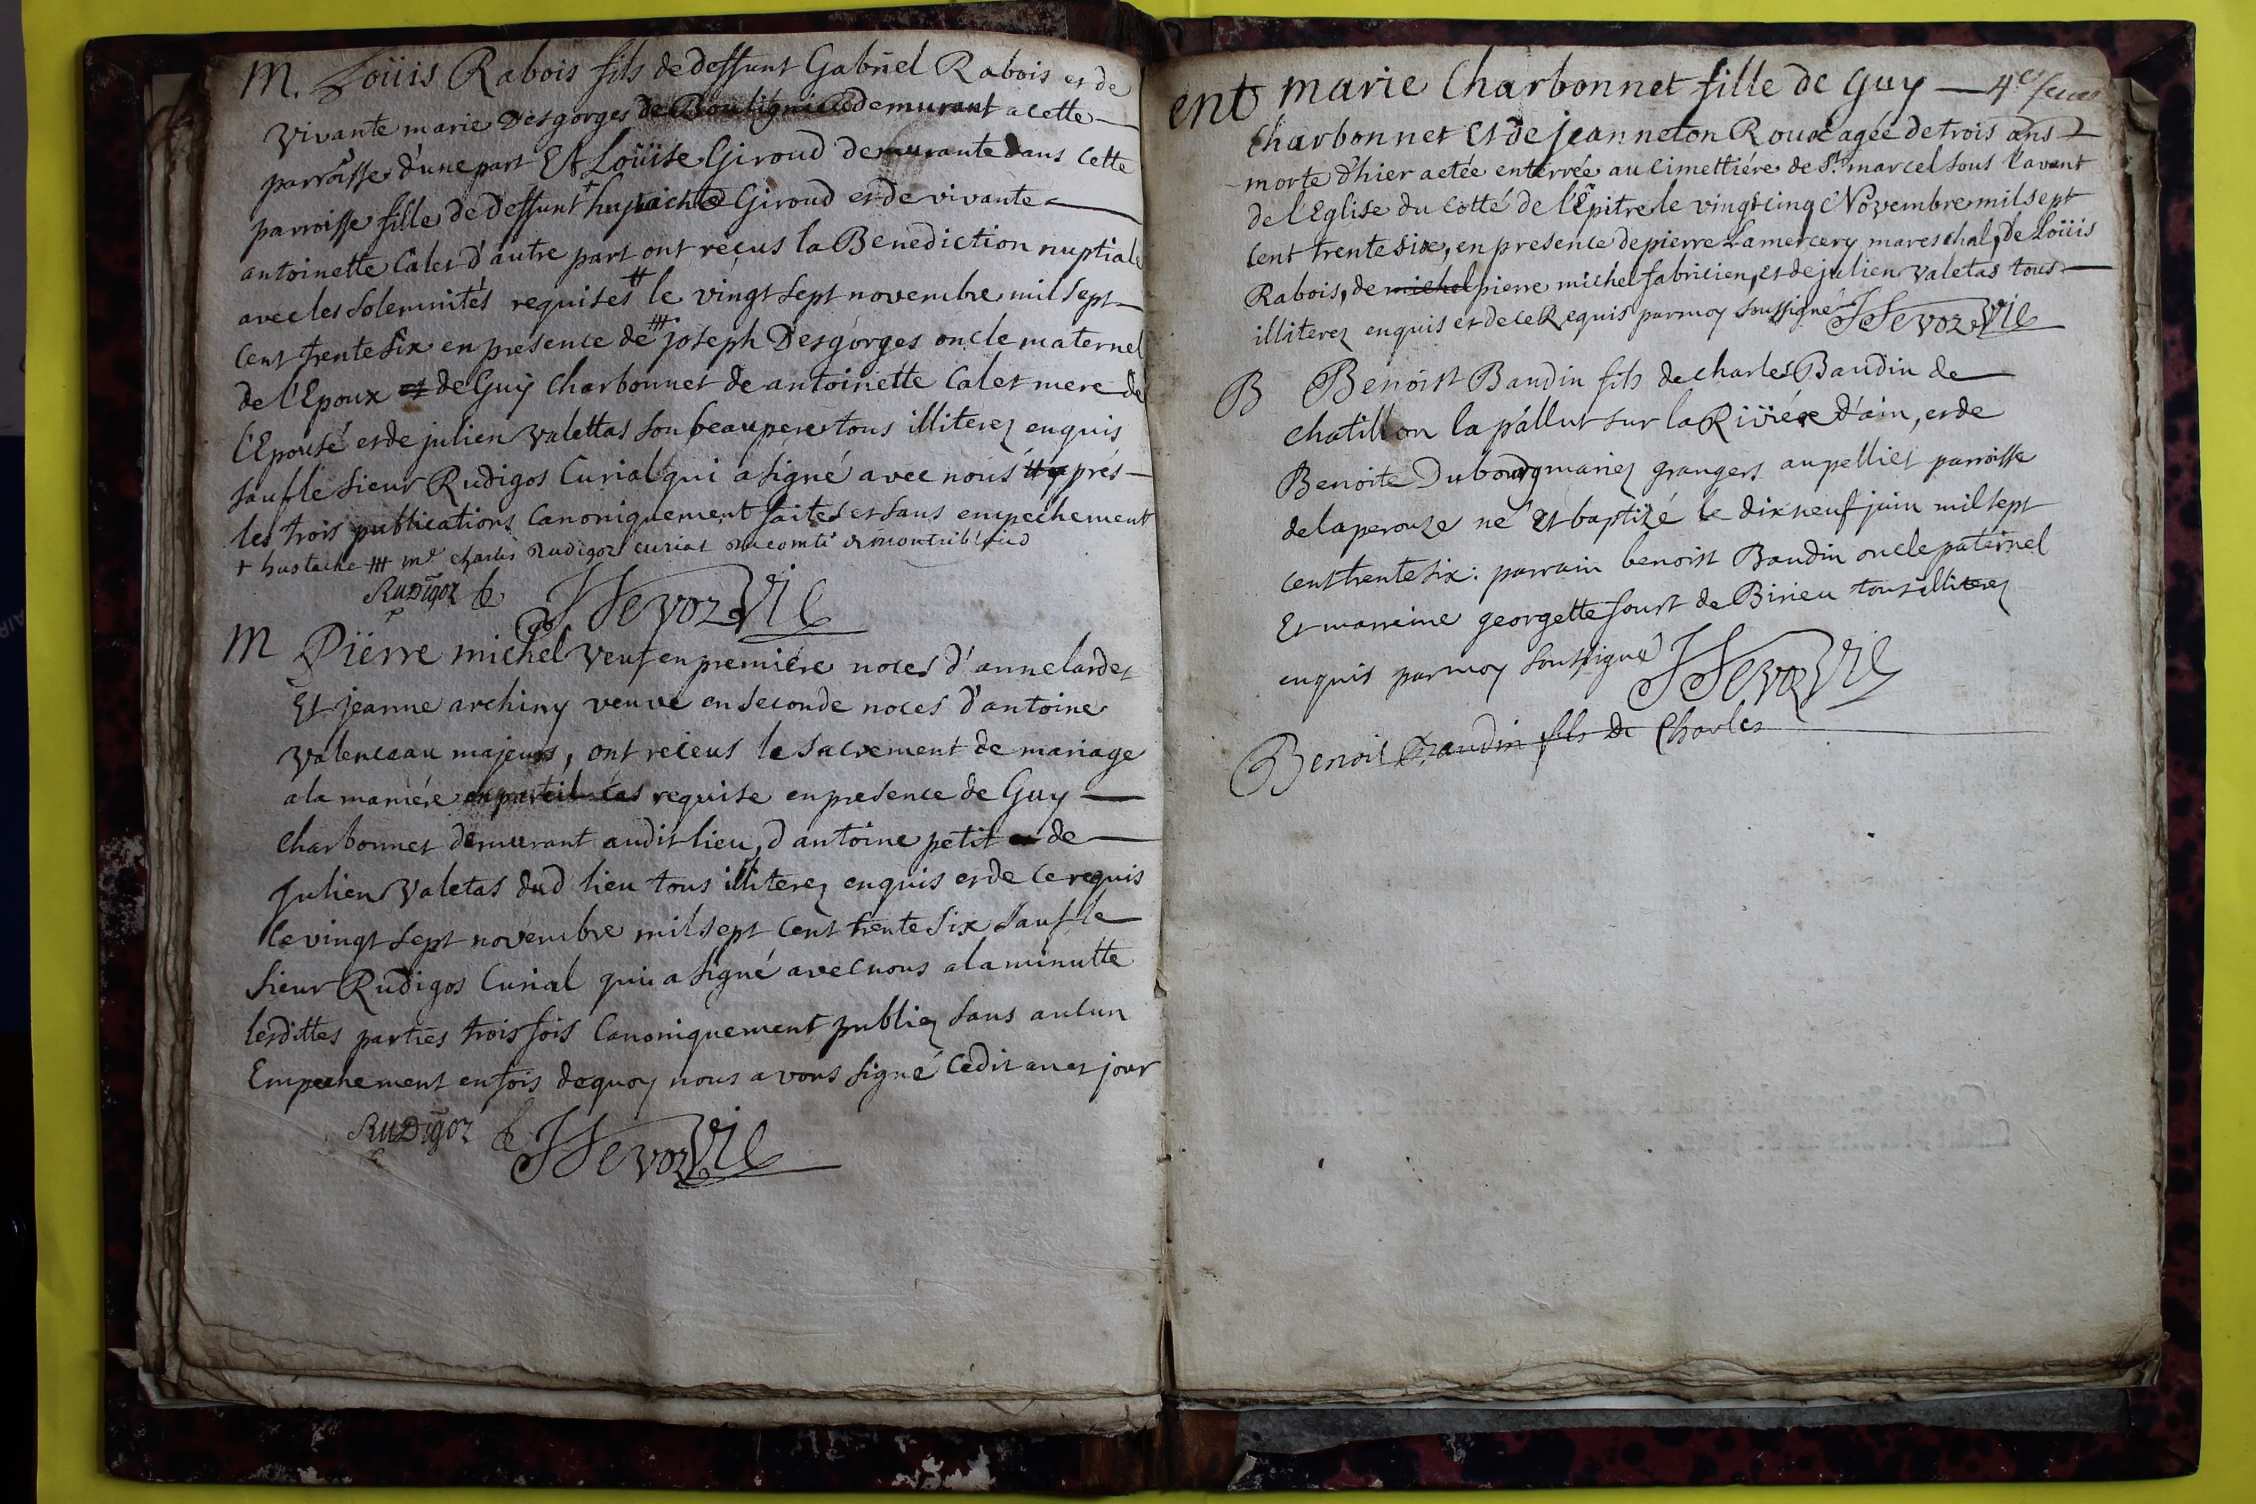 M. Loüis Rabois fils de deffunt Gabriel Rabois et de
vivante marie Desgorges demurant a cette
parroisse d'une part Et Loüise Giroud demurante dans cette
parroisse fille de deffunt + Giroud et de vivante
antoinette Calet d'autre part ont reçus la Benediction nuptiale
avec les solemnités requises ++ le vingt sept novembre mil sept
cent trente six en presence de +++ joseph Desgorges oncle maternel
de l'Epoux et de Guÿ Charbonnet de antoinette Calet mere de
l'Epouse et de julien valettas son beaupere tous illiterez enquis
sauf le sieur Rudigos Curial qui a signé avec nous ++ aprés
les trois publications Canoniquement faites et sans empechement
+ hustache +++ mr charles Rudigoz curial de montribloud
Rudigoz
M Pïerre michel veuf en premiére noces d'anne lardet
Et jeanne archiny veuve en seconde noces d'antoine
valenceau majeurs, ont receus le sacrement de mariage
a la maniére en pareil cas requise en presence de Guy
charbonnet demurant audit lieu, d antoine petit et de
Julien Valetas dud lieu tous illiterez enquis et de ce requis
le vingt sept novembre mil sept cent trente six sauf le
sieur Rudigos Curial qui a signé avec nous a la minutte
lesdittes parties trois fois Canoniquement publiez sans aucun
Empechement en fois de quoy nous avons signé cedit an et jour
Rudigoz
ent marie Charbonnet fille de Guy — 4e
Charbonnet Et de jeanneton Roux agée de trois ans
morte d'hier a etée enterrée au Cimettiére de St. marcel sous l'avant
de l'Eglise du cotté de l'Epitre le vingt cinq Novembre mil sept
cent trente six, en presence de pierre Lamercery mareschal, de Loüis
Rabois, de michel pierre michel fabricien, et de julien valetas tous
illiterez enquis et de ce Requis par moy soussigné
B Benoist Baudin fils de charles Baudin de
chatillon la pallut sur la Riviére d'ain, et de
Benoite Dubourg mariez grangers au pelliet parroisse
de la perouze né Et baptizé le dix neuf juin mil sept
cent trente six: parrain benoist Baudin oncle paternel
Et marreine georgette sourt de Birieu tous illiterez
enquis par moy soussigné
Benoit Baudin fils de Charles